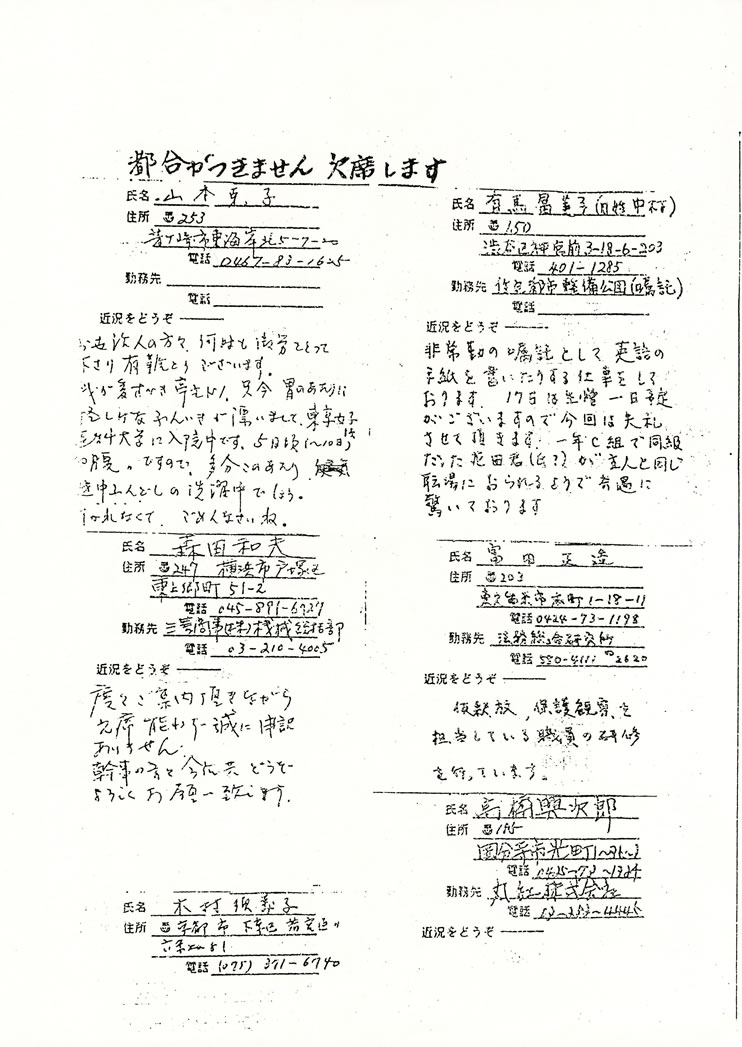 都合がつきません 欠席します
氏名 山本
住所 〒253
茅ヶ崎市東海岸北5-7-20
電話 0467-83-1625
勤務先
電話
近況をどうぞ
世話人の方々、何時も御労をとって
下さり有難とうございます。
只今 胃のあたりに
が漂いまして、東京女子
大学に入院中です。5日頃(〜10日
ですので、多分このあたり
の洗濯中でしょう。
行かれなくて ごめんなさいね。
氏名 森田和夫
住所 〒247 横浜市戸塚区
東上郷町 51-2
電話 045-891-6727
勤務先 三菱商事(株)機械総括部
電話 03-210-4005
近況をどうぞ
度々ご案内頂きながら
欠席 誠に申訳
ありません。
幹事の方々今后共どうぞ
よろしくお願い致します。
氏名 木村
住所 〒京都市 下京区 若宮通り
六条
電話 (075) 371-6740
氏名 有馬昌美子(旧姓中村)
住所 〒150
渋谷区神宮前3-18-6-203
電話 401-1285
勤務先 住宅都市整備公団(嘱託)
電話
近況をどうぞ
非常勤の嘱託として英語の
手紙を書いたりする仕事をして
おります。17日は 一日予定
がございますので今回は失礼
させて頂きます。一年C組で同級
だった 君(氏?)が主人と同じ
職場におられるようで奇遇に
驚いております
氏名 富田正造
住所 〒203
東久留米市本町1-18-11
電話 0424-73-1198
勤務先 法務総合研究所
電話 580-4111 内2620
近況をどうぞ
仮釈放,保護観察を
担当している職員の研修
を行っています。
氏名 高橋興次郎
住所 〒185
国分寺市光町
電話
勤務先 丸紅株式会社
電話
近況をどうぞ